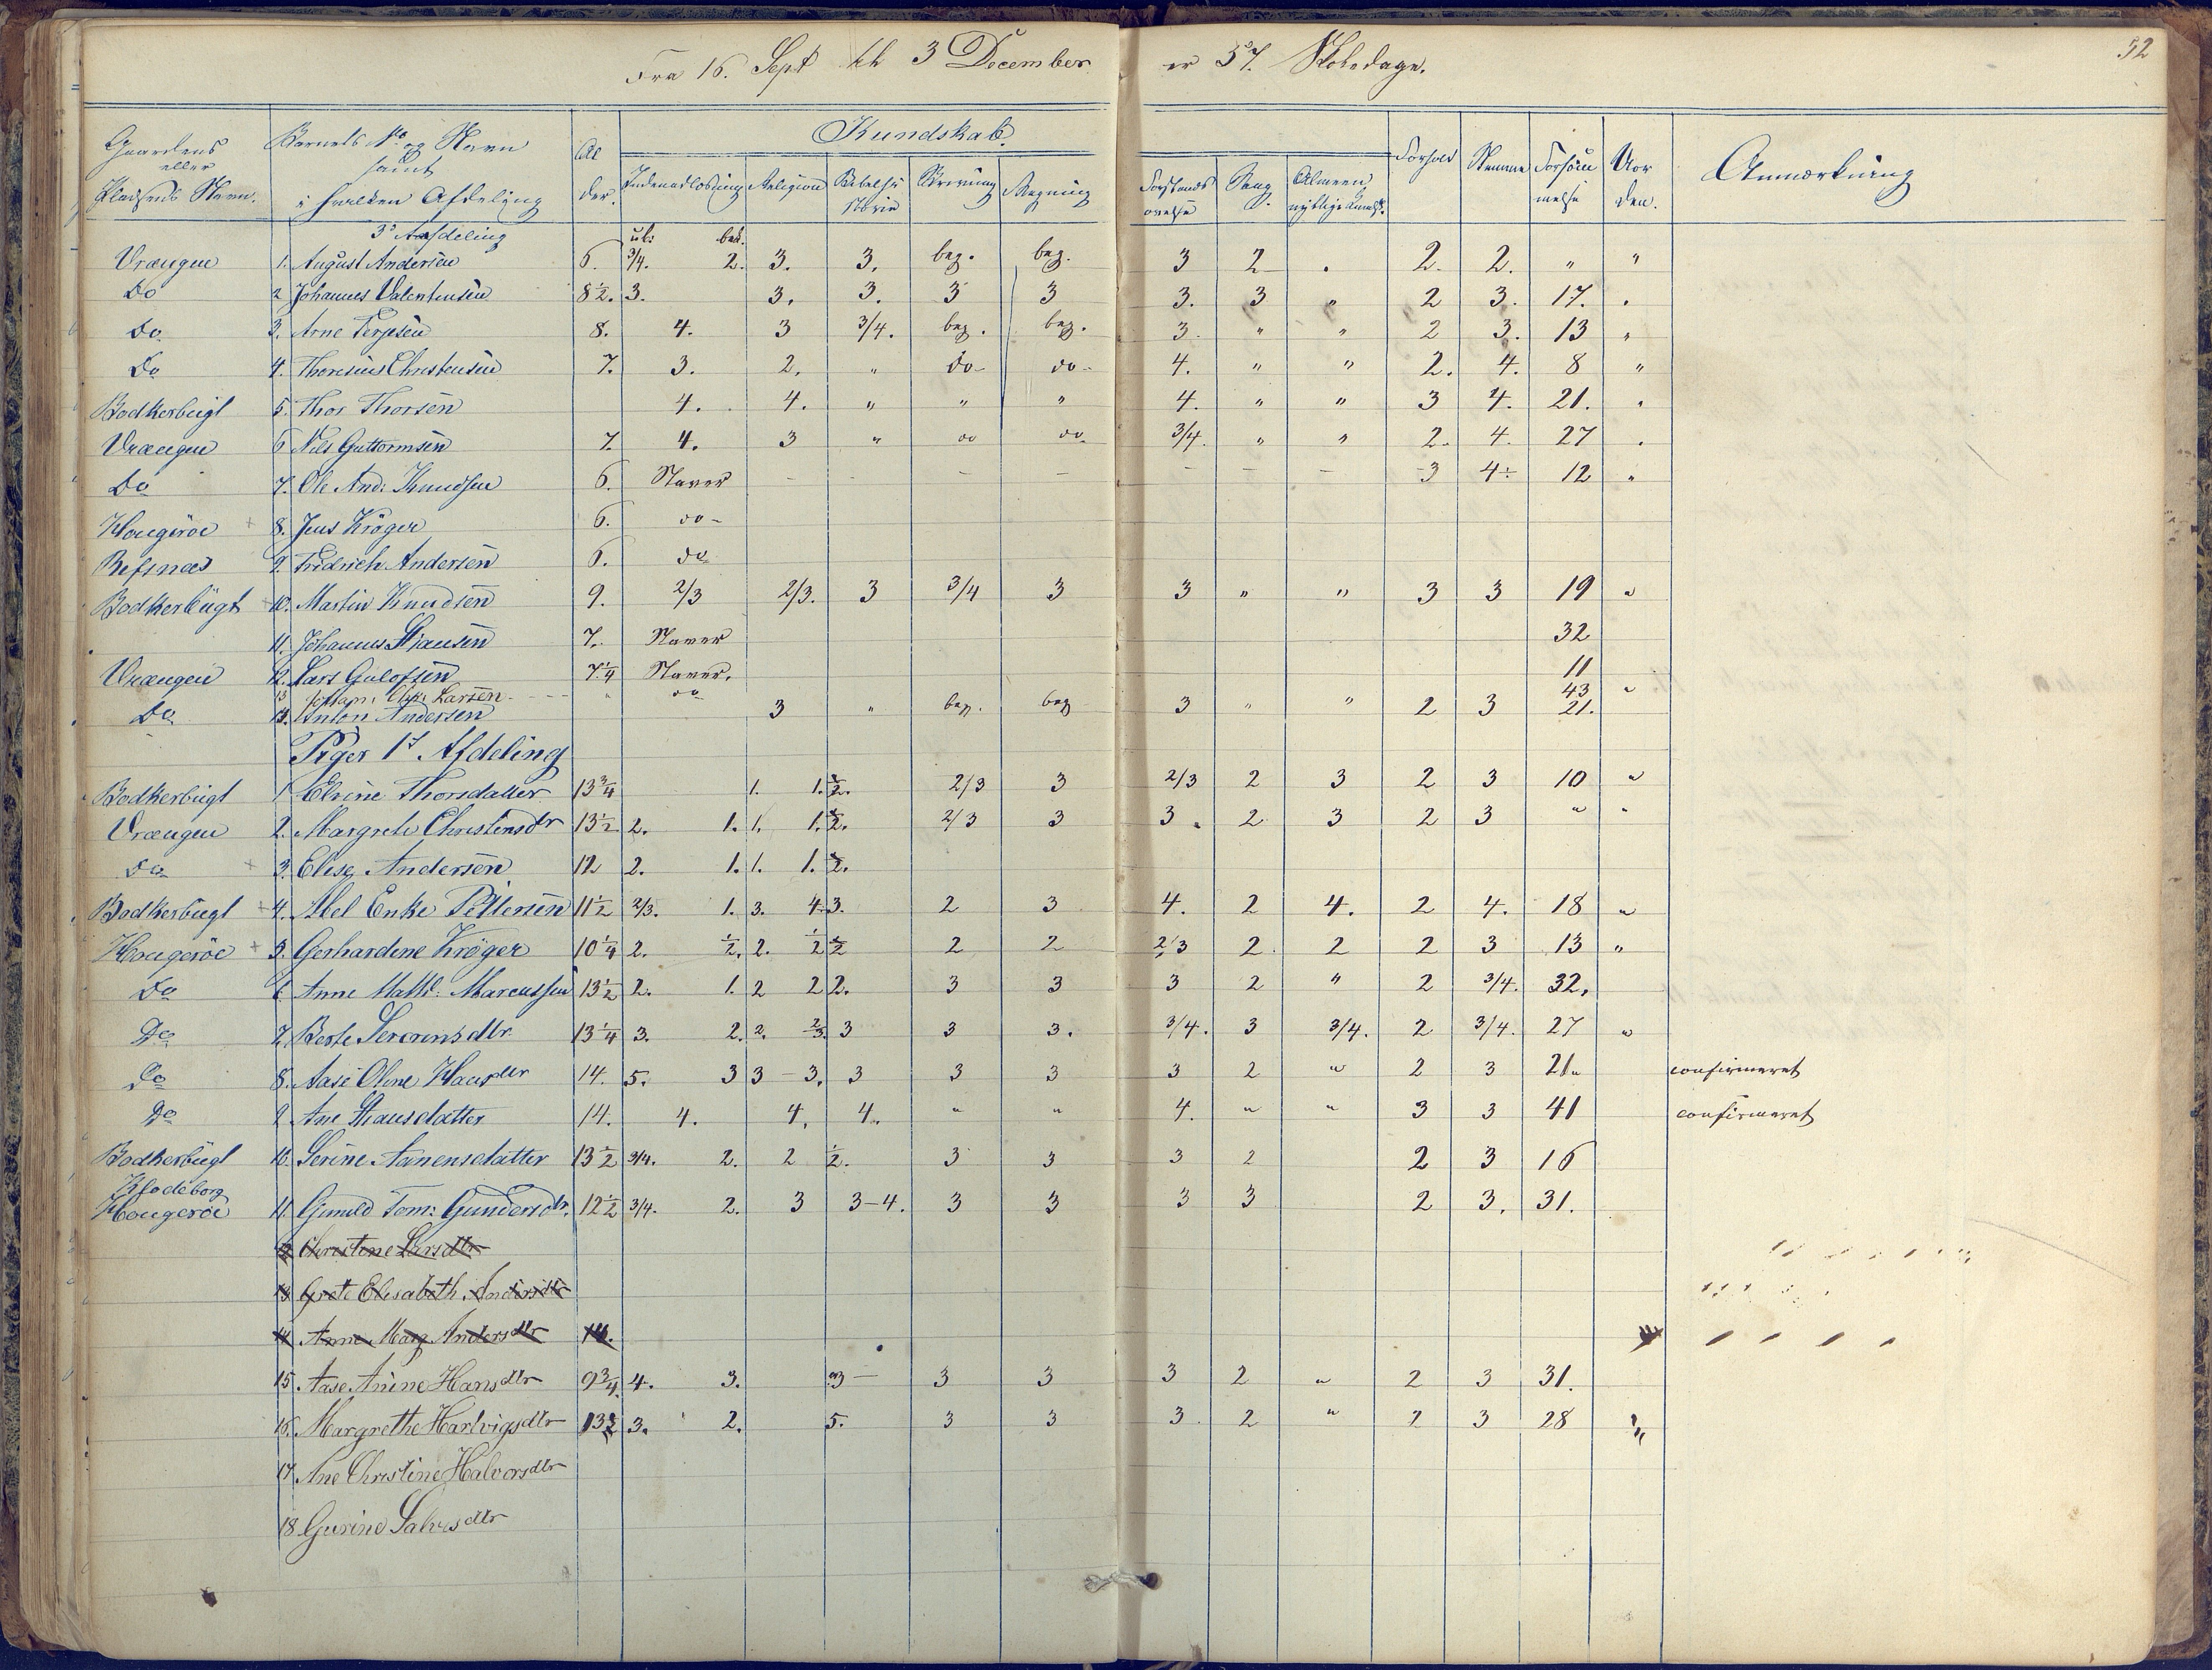 52
Fra 16. Sept til 3 December er 57. Skoledage.
Gaardens eller Pladsens Navn. Barnets No og Navn samt i hvilken Afdeling Alder. Kundskab. Forhold Evne Forsømmelse Uorden. Anmærkning
Indenadlæsning Religion Bibelhistorie Skrivning Regning Forstandsøvelse Sang Almeennyttige Kundsk.
3d Afdeling ub: bed.
Vrængen 1. August Andersen 6. 3/4. 2. 3. 3. beg. beg. 3 2 . 2. 2. " "
Do 2 Johannes Valentinsen 8½. 3. 3. 3. 3 3 3. 3 " 2 3. 17. .
Do 3. Arne Terjesen 8. 4. 3 3/4. beg. beg. 3. " " 2 3. 13 "
Do 4. Thorsius Christensen 7. 3. 2. " do do 4. " " 2. 4. 8 "
Bodkerbugt 5. Thor Thorsen 4. 4. " " " 4. " " 3 4. 21. .
Vrængen 6 Nils Guttormsen 7. 4. 3 " do do 3/4. " " 2. 4. 27 .
Do 7. Ole And: Knudsen 6. Staver - - - - - - 3 4÷ 12 "
Hougeröe + 8. Jens Kröger 6. do
Refsnæs 9. Fredrich Andersen 6. do
Bodkerbugt + 10. Martin Knudsen 9. 2/3 2/3. 3 3/4 3 3 " " 3 3 19 "
11. Johannes 7. Staver 32
Vrængen 12. Lars Gulofsen 7¼ Staver. 11
13 Johan Larsen " do 43
Do 14. Anton Andersen 3 " beg. beg 3 " " 2 3 21. "
Piger 1st Afdeling
Bodkerbugt 1 Elvine Thorsdatter 13¾ 1. 1. 2. 2/3 3 2/3 2 3 2 3 10 "
Vrængen 2. Margrete Christensdtr 13½ 2. 1. 1. 1. 2. 2/3 3 3 2 3 2 3 " "
do + 3. Elise Andersen 12 2. 1. 1. 1. 2.
Bodkerbugt + 4. Abel Enke Pettersen 11½ 2/3. 1. 3. 4. 3. 2 3 4. 2 4. 2 4. 18 "
Hougeröe + 5. Gerhardine Kröger 10¼ 2. ½. 2. ½ 2 2 2 2/3 2 2 2 3 13 "
Do 6. Anne Math: Marcussen 13½ 2. 1. 2 2 2. 3 3 3 2 " 2 3/4. 32.
Do 7. Berte Sørensdtr 13¼ 3. 2. 2. 2/3. 3 3 3. 3/4. 3 3/4. 2 3/4. 27 "
Do 8. Aase Oline Hansdtr 14. 5. 3 3 - 3. 3 3 3 3 2 " 2 3 21 confirmeret
Do 9 Ane 14. 4. 4. 4. " " 4. " " 3 3 41 confirmeret
Bodkerbugt 10. Serine Aanensdatter 13½ 3/4. 2. 2 ½. 3 3 3 2 2 3 16
Klodeborg
Hougeröe 11. Gunuld Tom: Gundersdtr. 12½ 3/4. 2. 3 3-4. 3 3 3 3 2 3. 31.
12 Christine Larsdtr
13 Grete Elisabeth Andersdtr
14 Anne Marg Andersdtr 14.
15 Aase Anine Hansdtr 9¾. 4. 3. 3 - 3 3 3 2 " 2 3 31.
16. Margrethe Hartvigsdtr 13½ 3. 2. 5. 3 3 3. 2 " 2 3 28
17 Ane Christine Halvorsdtr
18 Gurine Salvesdtr